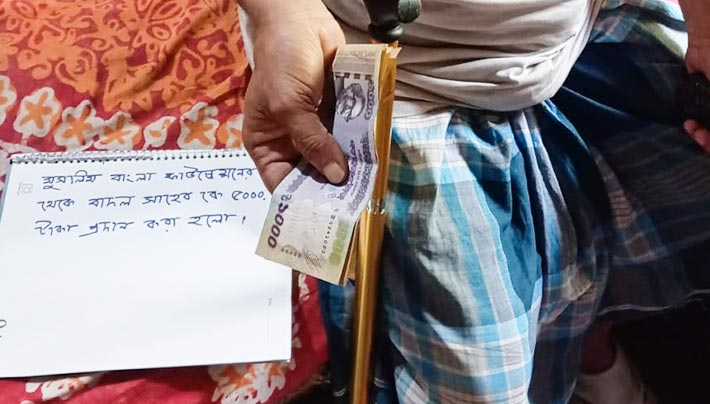 মুসলিম বাংলা ফাউন্ডেশনের
থেকে বাদল সাহেব কে ৫০০০,
টাকা প্রদান করা হলো।